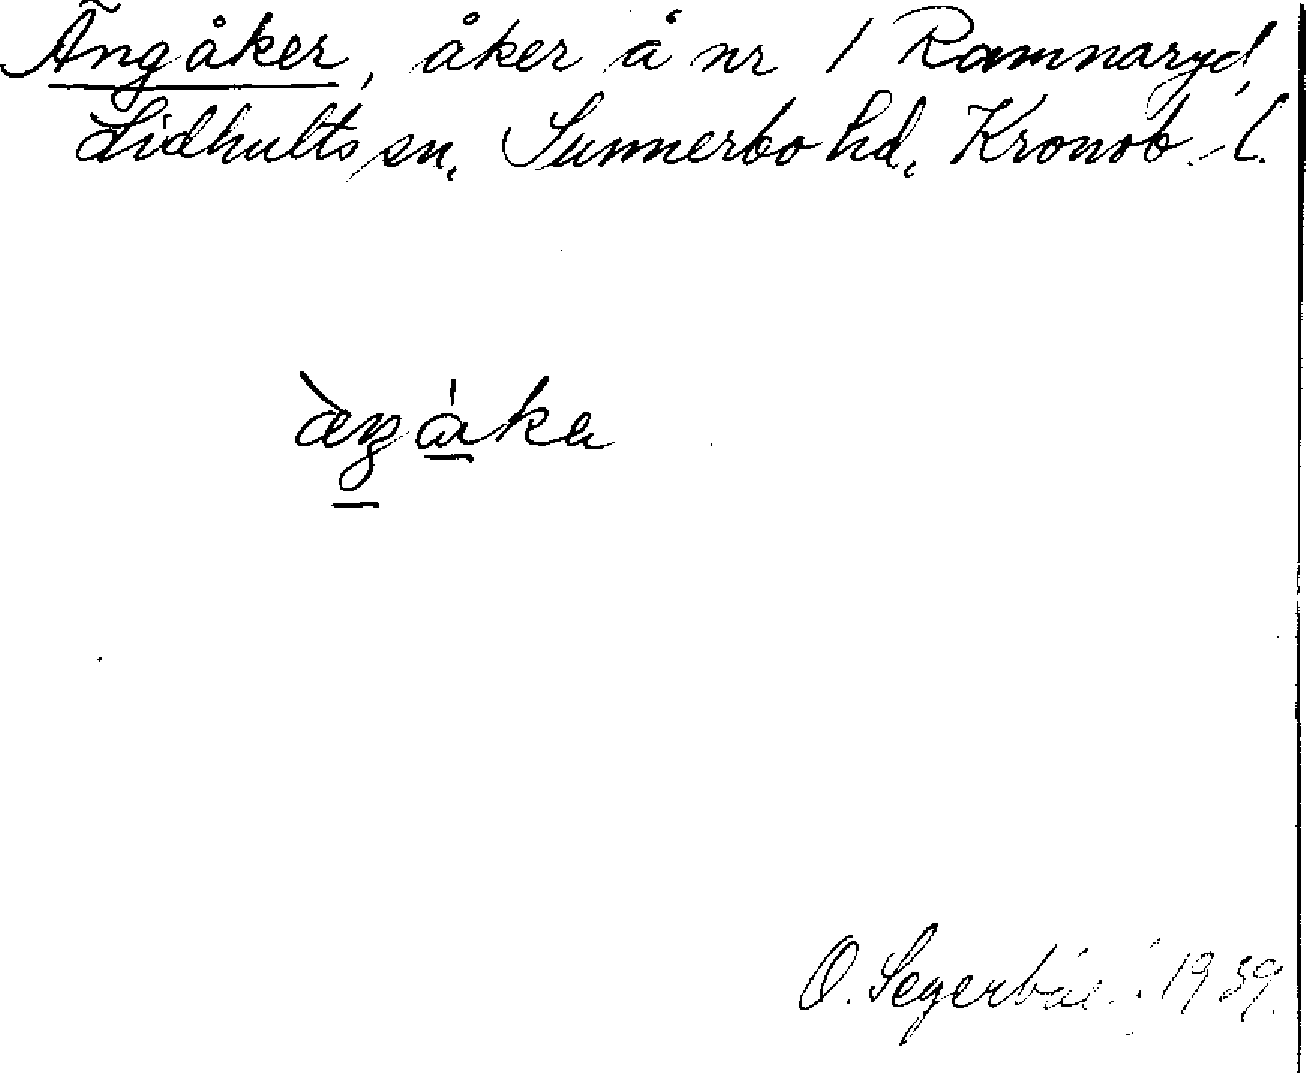 Ängåker, åker å nr 1 Ramnaryd,
Lidhults sn, Sunnerbo hd, Kronob. l.
O. Segerbäc 1939.